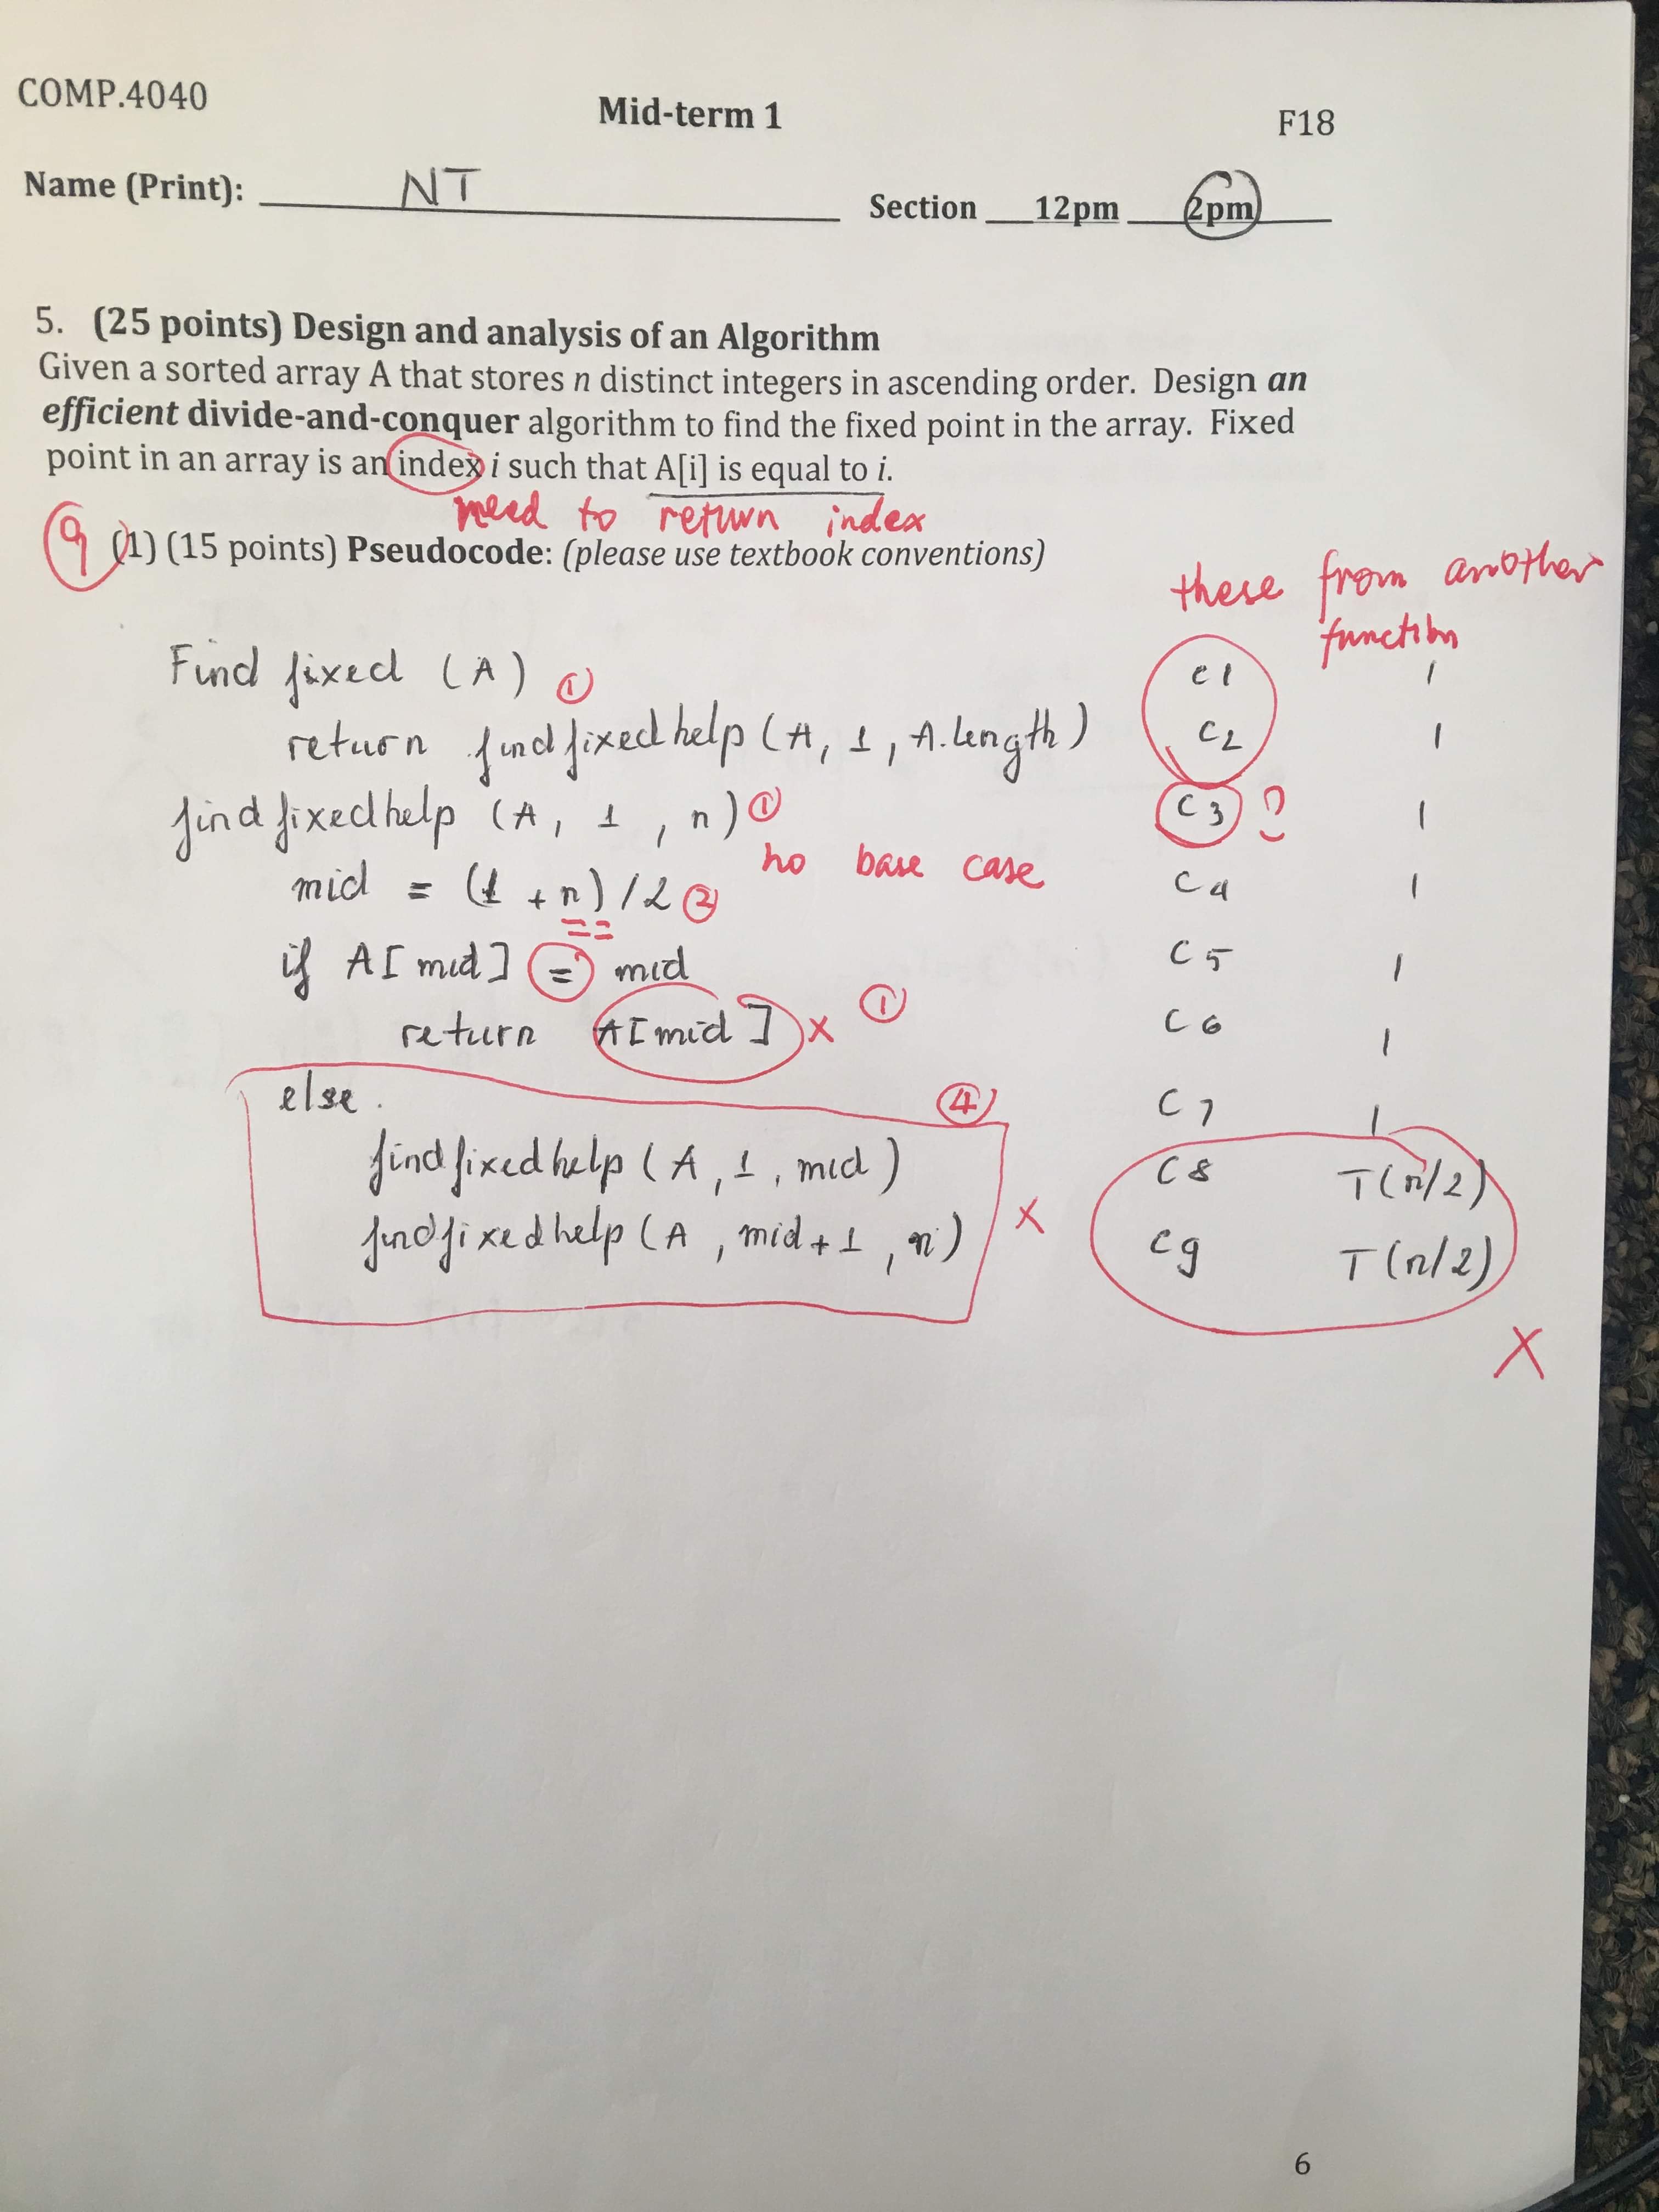 COMP.4040
Mid-term 1
F18
Name (Print): NT Section 12pm 2pm
5. (25 points) Design and analysis of an Algorithm
Given a sorted array A that stores n distinct integers in ascending order. Design an
efficient divide-and-conquer algorithm to find the fixed point in the array. Fixed
point in an array is an index i such that A[i] is equal to i.
need to return index
9 (1) (15 points) Pseudocode: (please use textbook conventions)
these from another
function
Find fixed (A) 1 c1 1
return findfixedhelp (A, 1, A.length) C2 1
findfixedhelp (A, 1, n) 1 C3 ? 1
no base case
mid = (1 + n) / 2 2 C4 1
==
if A[mid] = mid C5 1
return A[mid] x 1 C6 1
else. 4 C7 1
findfixedhelp (A, 1, mid) C8 T(n/2)
findfixedhelp (A, mid+1, n) x C9 T(n/2)
X
6